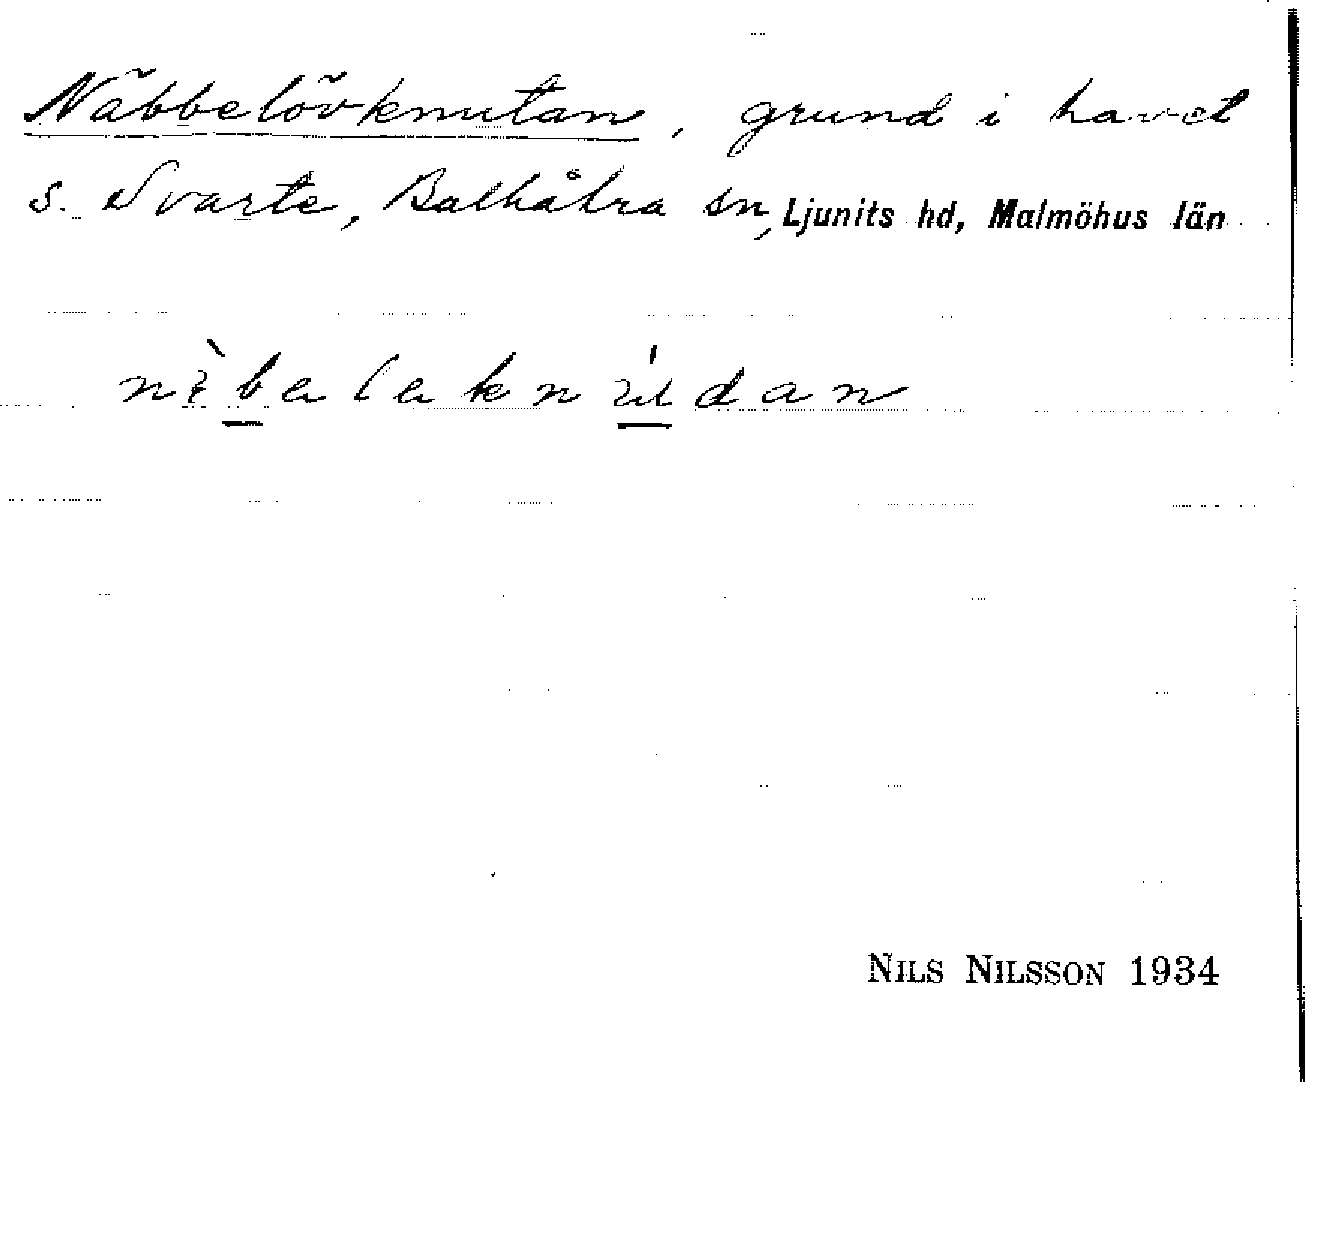 Näbbelövknutan, grund i havet
s. Svarte, Balkåkra sn, Ljunits hd, Malmöhus län
NILS NILSSON 1934